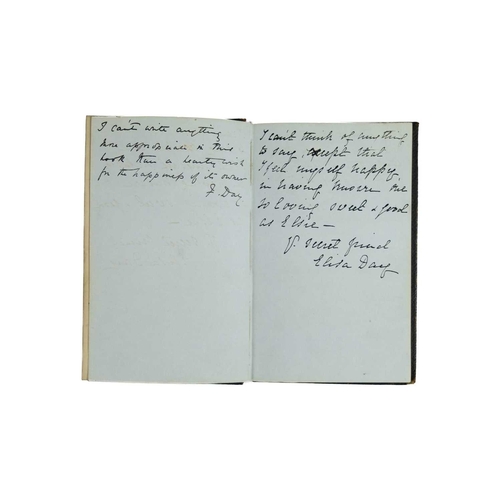 I can't write anything
more appropriate in this
book than a hearty wish
for the happiness of its owner
F. Day
I can't think of anything
to say, except that
I feel myself happy,
in having known one
so loving sweet & good
as Elsie —
Yr. secret friend
Elisa Day